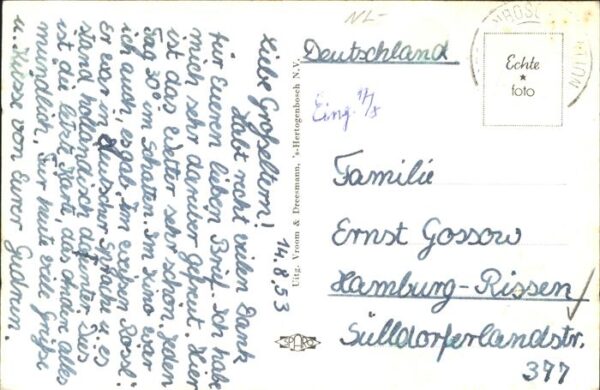 NL-
Deutschland
Echte
foto
Eing.
Familie
Ernst Gossow
Hamburg-Rissen
Sülldorferlandstr.
377
Uitg. Vroom & Dreesmann, 's-Hertogenbosch N.V.
14.8.53
Liebe Großeltern!
Habt recht vielen Dank
für Eueren lieben Brief. Ich habe
mich sehr darüber gefreut. Hier
ist das Wetter sehr schön. Jeden
Tag 30° im Schatten. Im Kino war
ich auch, es gab „Im weißen Rössl“.
Er war in deutscher Sprache u. es
stand holländisch darunter. Das
ist die letzte Karte, das andere alles
mündlich. Für heute viele Grüße
u. Küsse von Eurer Gudrun.